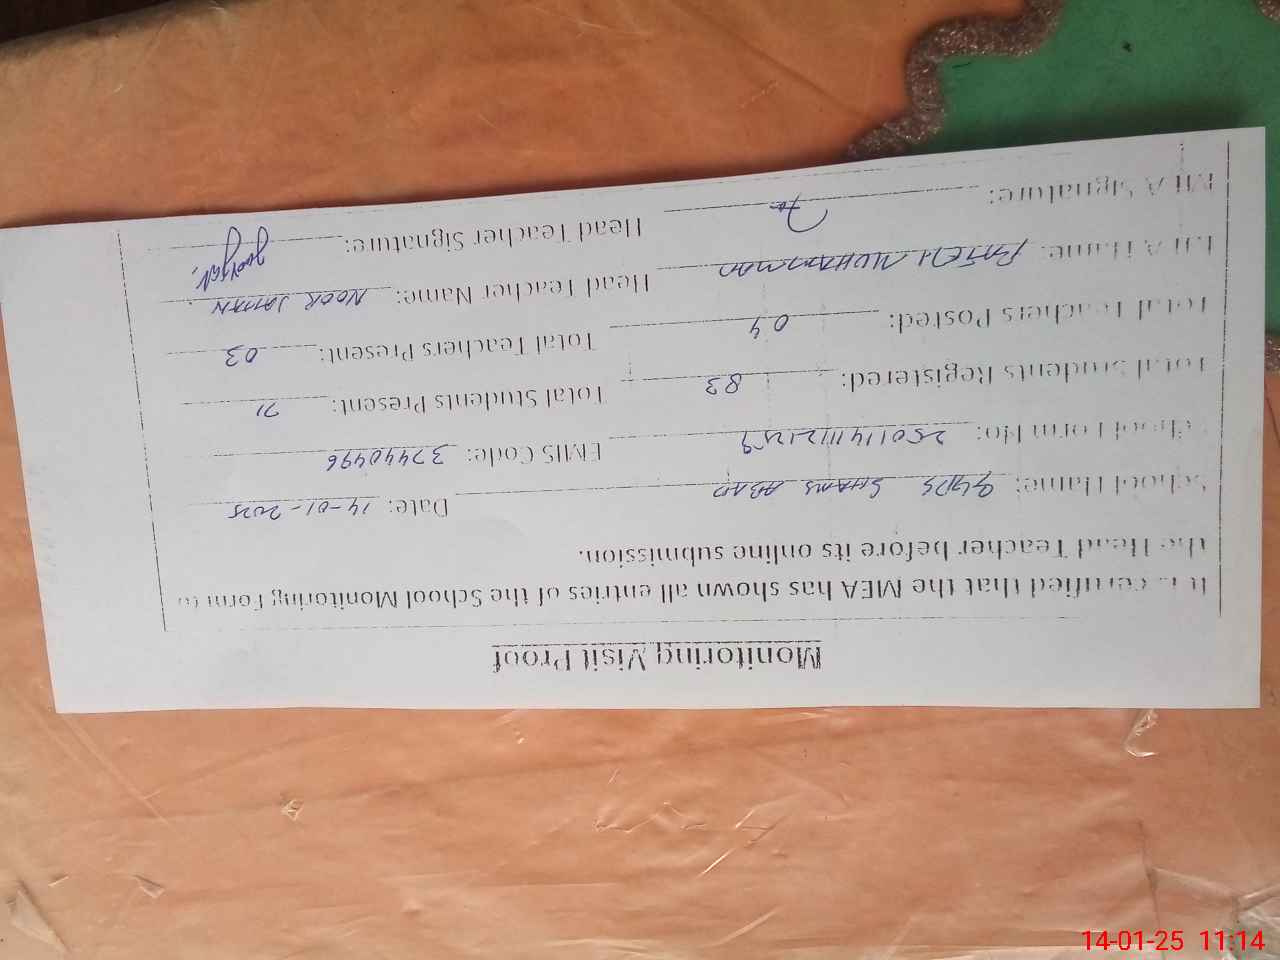 Monitoring Visit Proof
It is certified that the MEA has shown all entries of the School Monitoring Form to
the Head Teacher before its online submission.
School Name: SHAMS ABAD Date: 14-01-2025
School Form No: EMIS Code: 37440496
Total Students Registered: 83 Total Students Present: 71
Total Teachers Posted: 04 Total Teachers Present: 03
MEA Name: MUHAMMAD Head Teacher Name: NOOR JAHAN
MEA Signature: Head Teacher Signature:
14-01-25 11:14